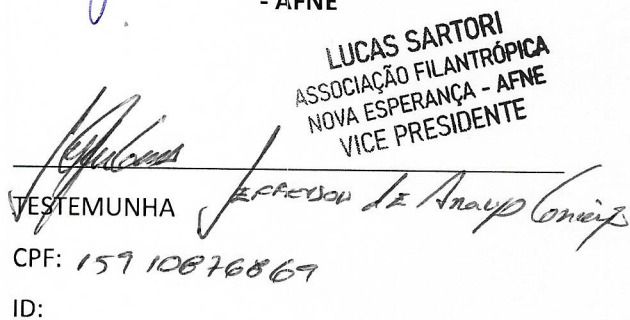 - AFNE
LUCAS SARTORI
ASSOCIAÇÃO FILANTRÓPICA
NOVA ESPERANÇA - AFNE
VICE PRESIDENTE
TESTEMUNHA Jefferson de Araujo
CPF: 15910876869
ID: